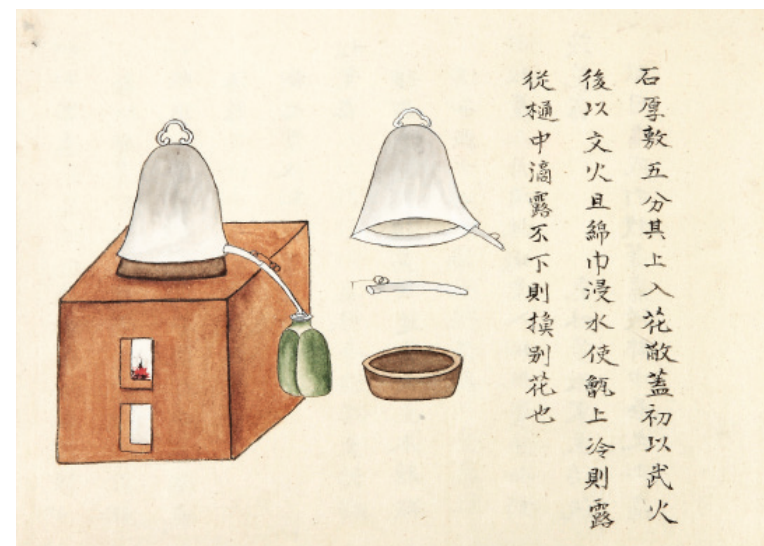 石厚敷五分其上入花散蓋初以武火
後以文火且綿巾浸水使甑上冷則露
從樋中滴露不下則換別花也